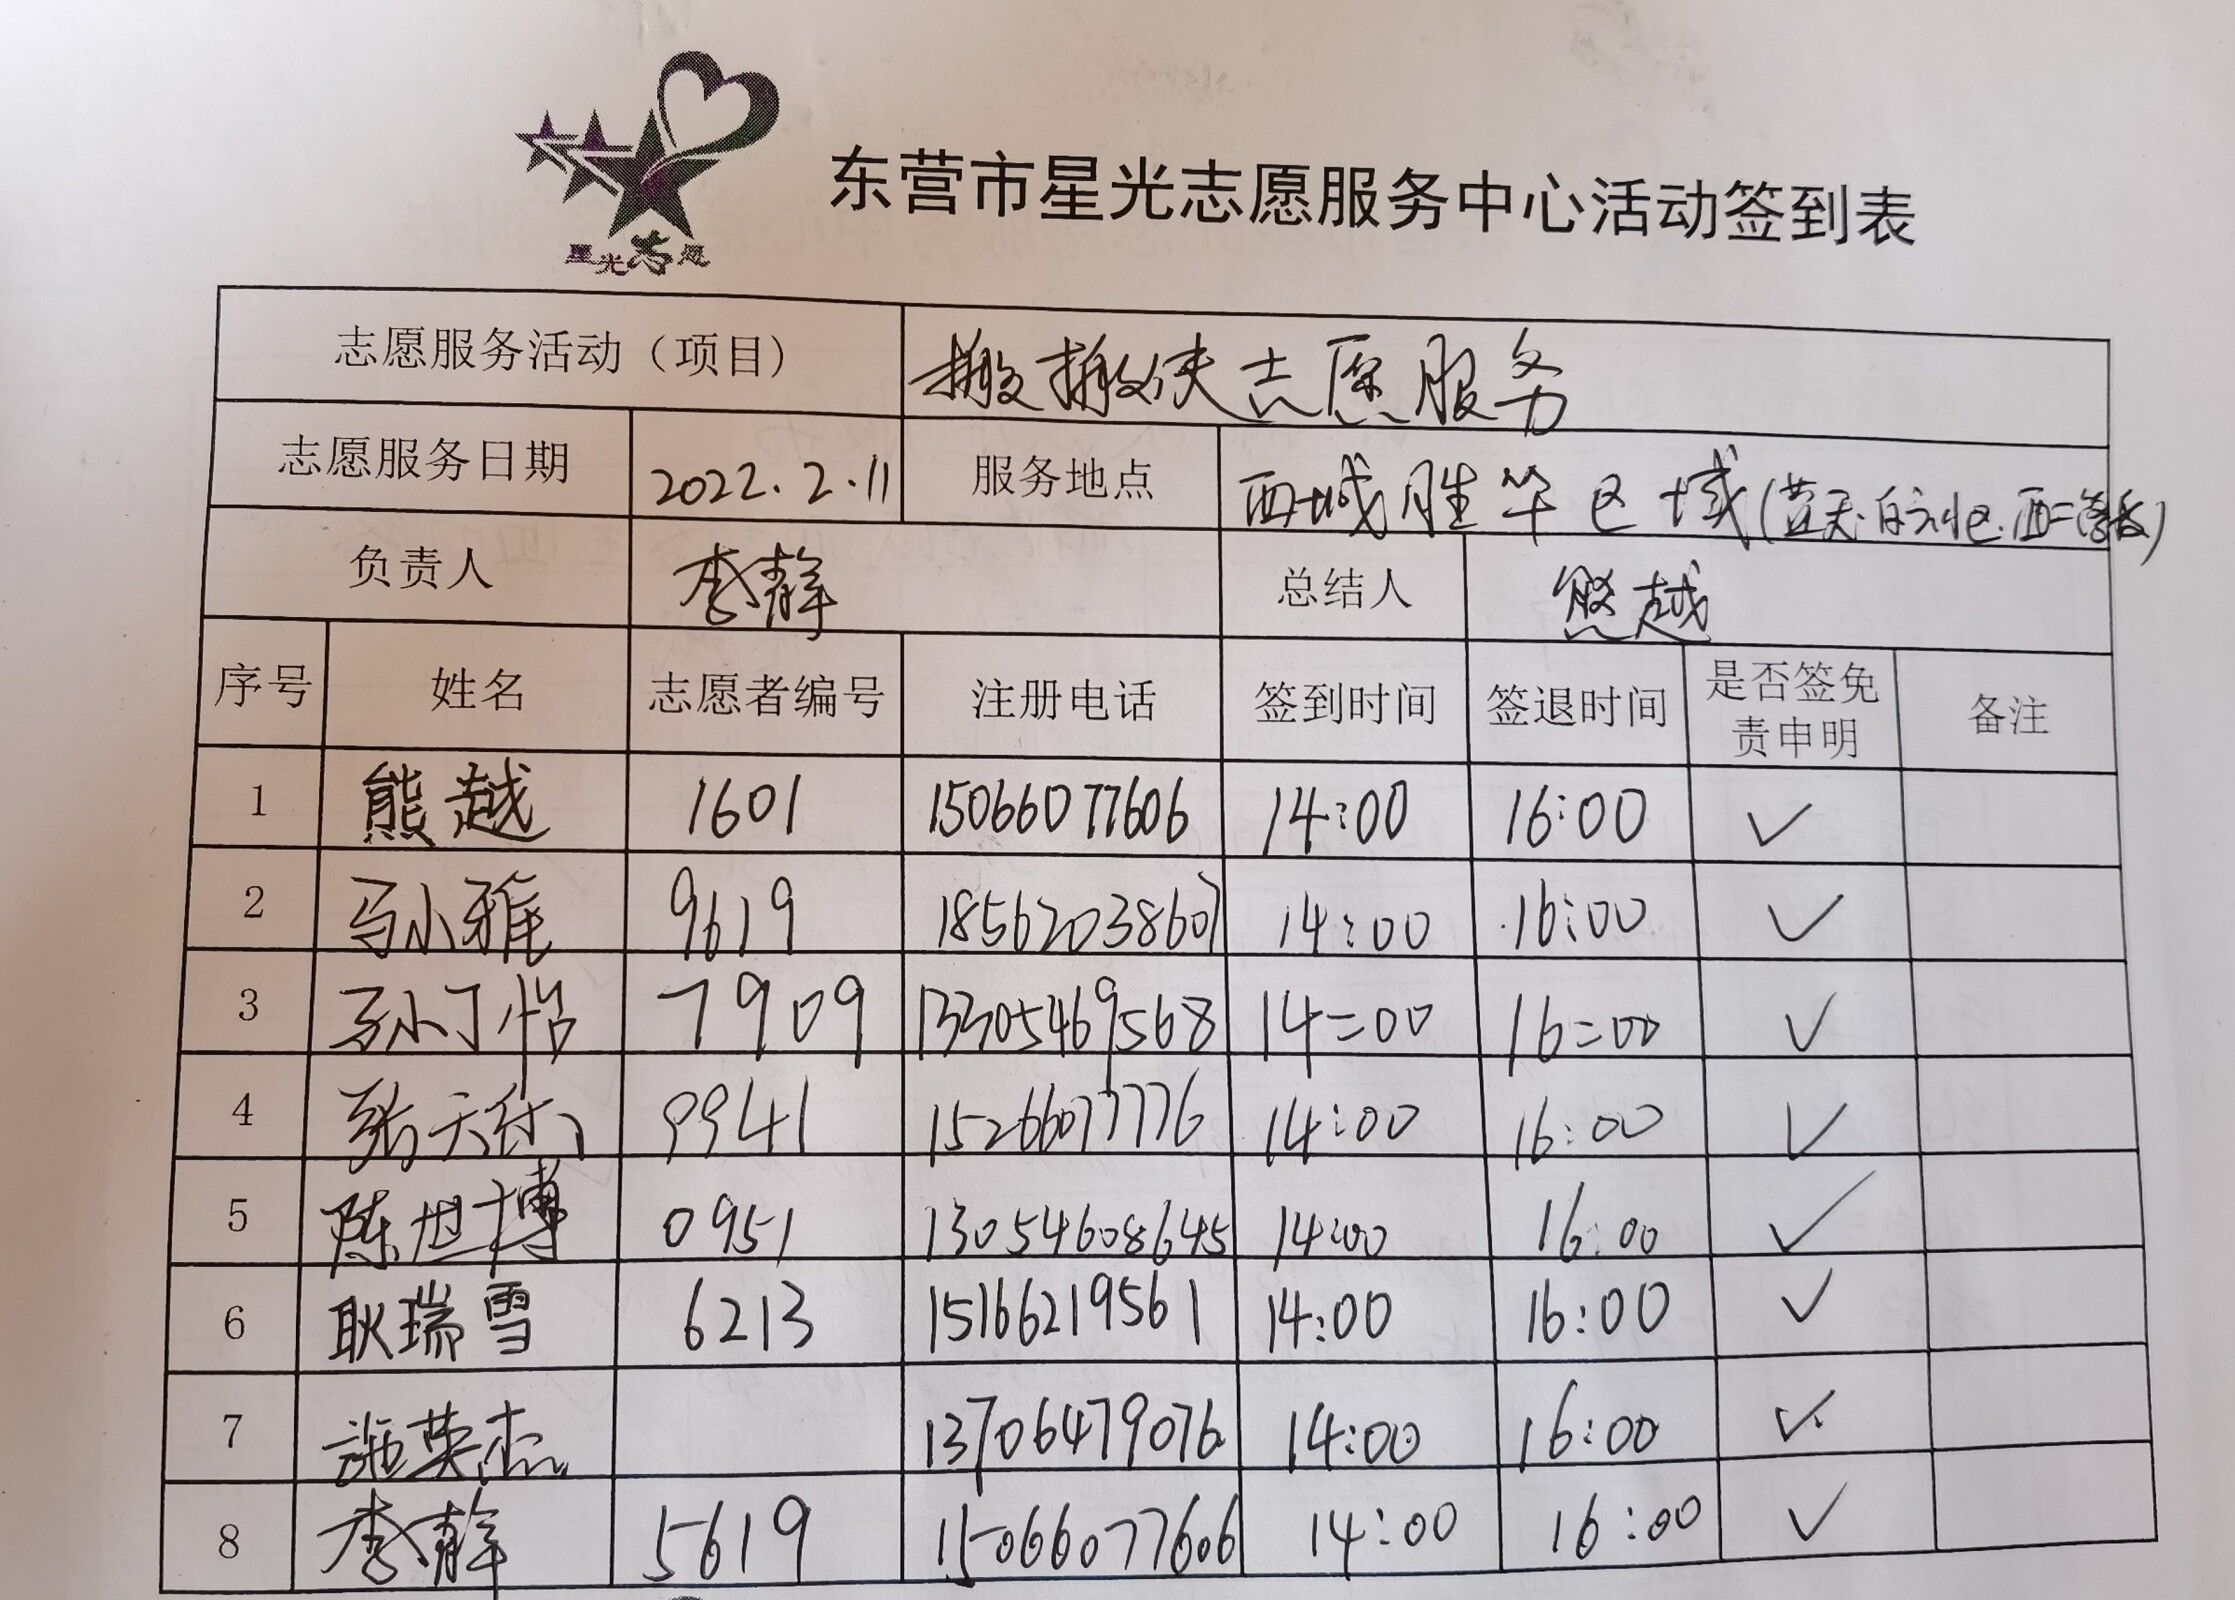 星光志愿
东营市星光志愿服务中心活动签到表
志愿服务活动（项目） 搬搬侠志愿服务
志愿服务日期 2022.2.11 服务地点 西城胜华区域(蓝天.白云小区.西二学校)
负责人 李静 总结人 熊越
序号 姓名 志愿者编号 注册电话 签到时间 签退时间 是否签免责申明 备注
1 熊越 1601 15066077606 14:00 16:00 ✓
2 马小雅 9619 18562038607 14:00 16:00 ✓
3 孙丁怡 7909 13305469568 14:00 16:00 ✓
4 张天 9941 15266077776 14:00 16:00 ✓
5 陈旭博 0951 13054608645 14:00 16:00 ✓
6 耿瑞雪 6213 15166219561 14:00 16:00 ✓
7 施英杰 13706479076 14:00 16:00 ✓
8 李静 5619 15066077606 14:00 16:00 ✓